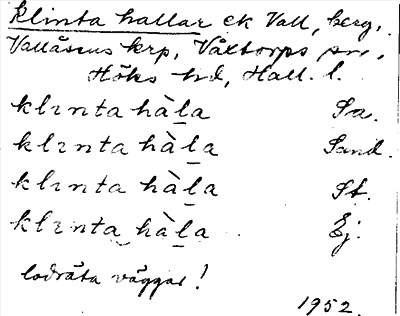 Klinta hallar ek Vall, berg,
Vallåsens krp, Våxtorps sn,
Höks hd, Hall. l.
klınta hàl̲a Sa.
klınta hàl̲a Sand.
klınta hàl̲a St.
klınta hàl̲a Ej.
lodräta väggar!
1952.